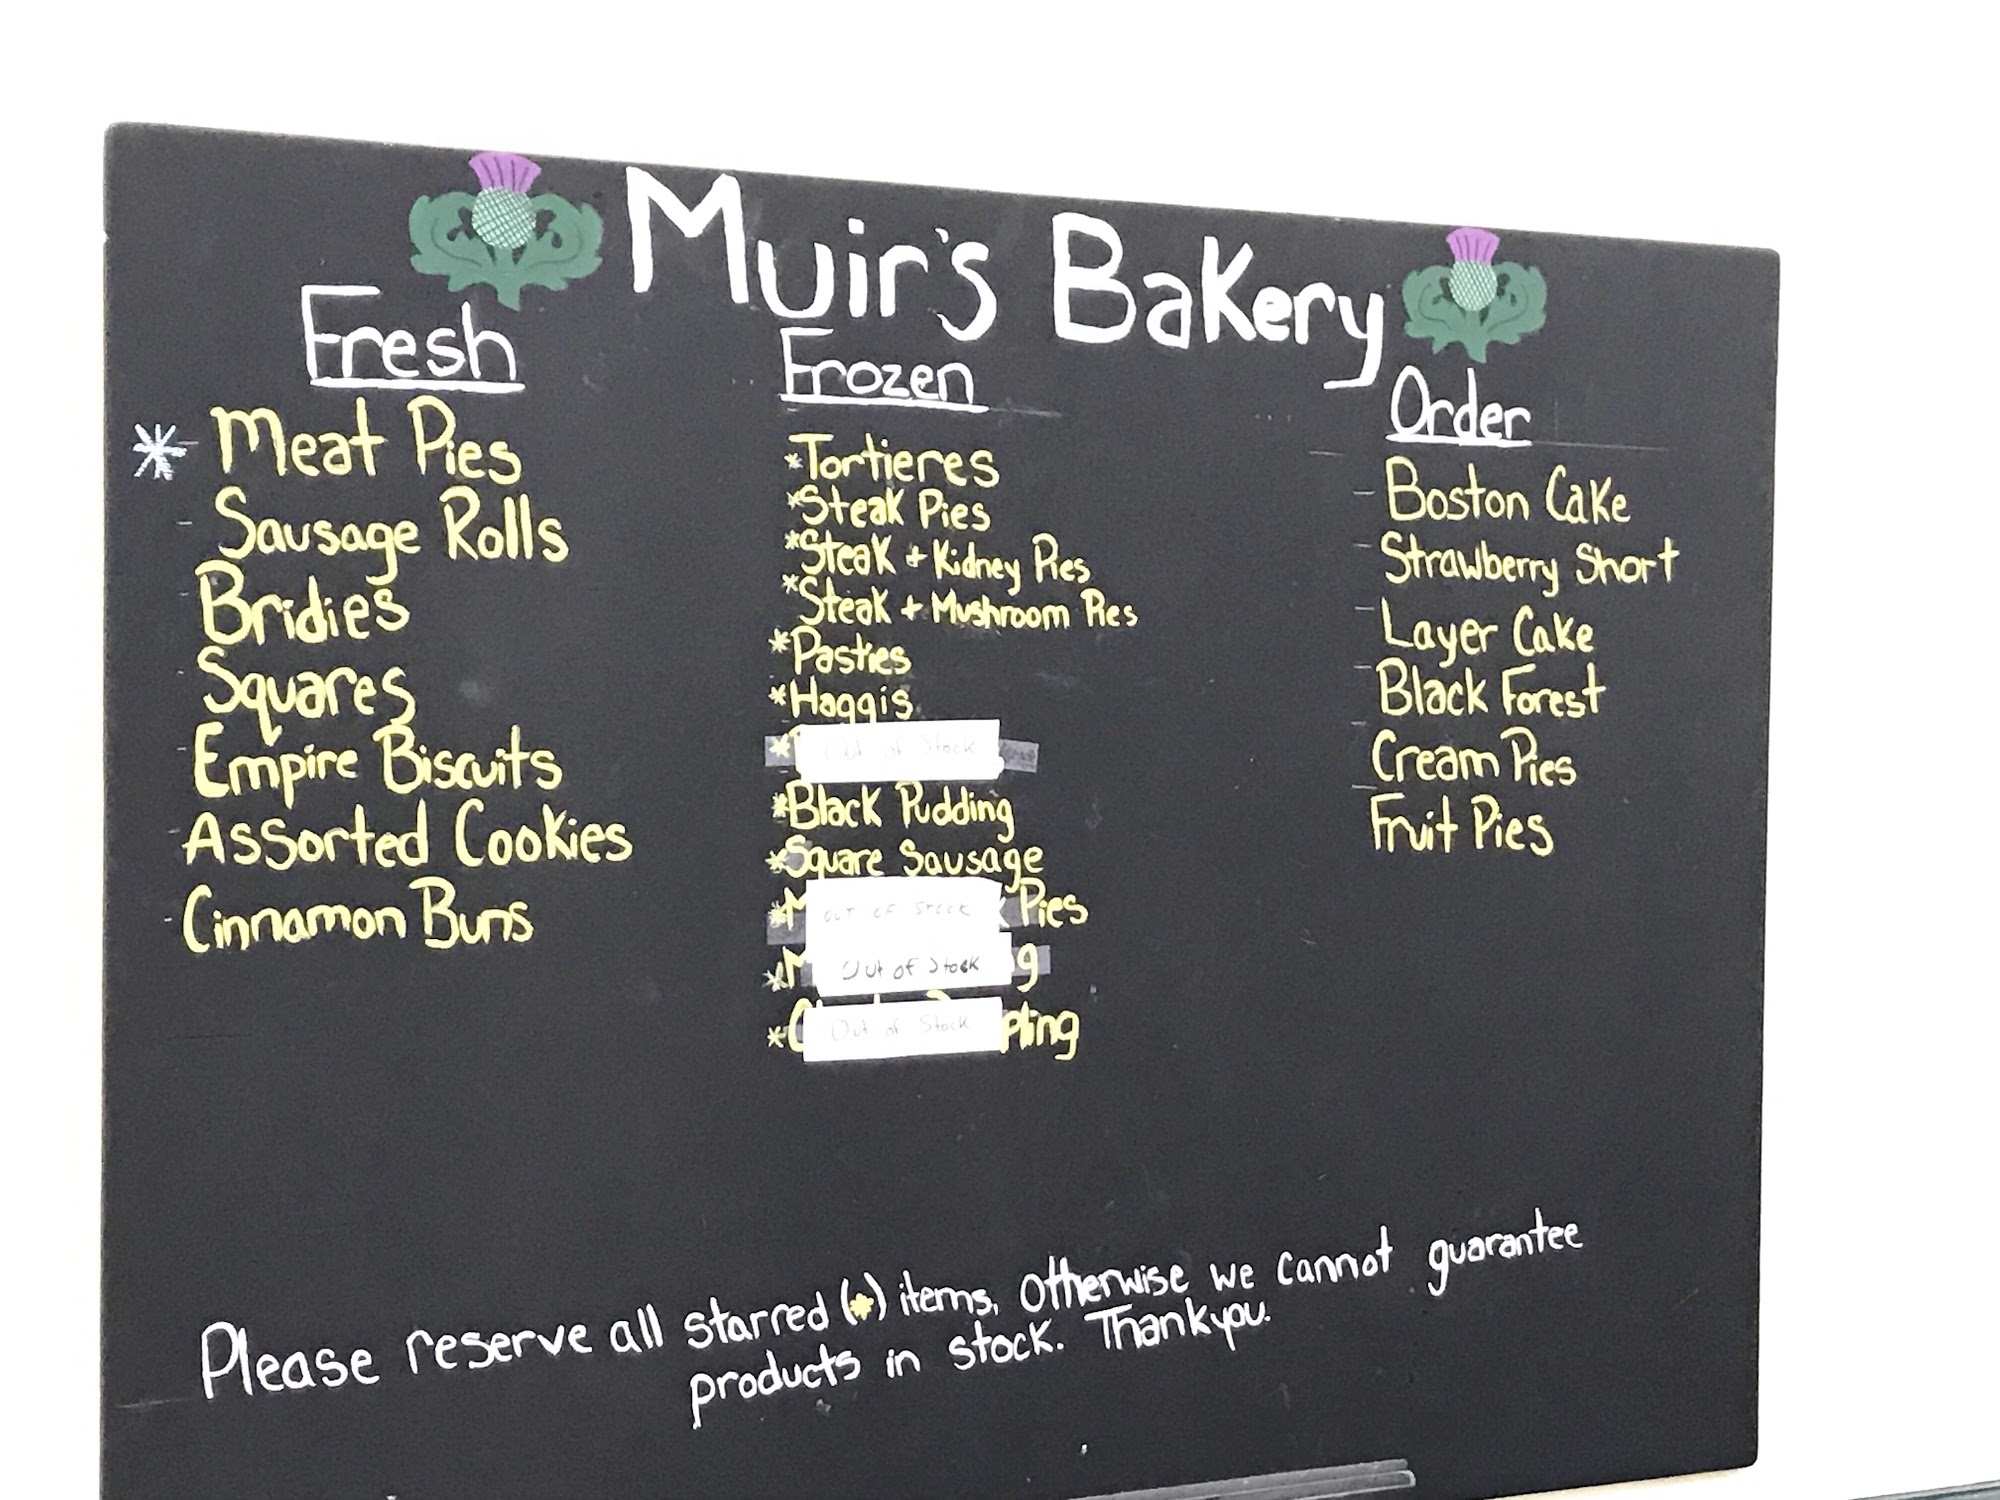 Muir's Bakery
Fresh
* Meat Pies
- Sausage Rolls
- Bridies
- Squares
- Empire Biscuits
- Assorted Cookies
- Cinnamon Buns
Frozen
*Tortieres
*Steak Pies
*Steak + Kidney Pies
*Steak + Mushroom Pies
*Pasties
*Haggis
* Out of Stock
*Black Pudding
*Square Sausage
*M OUT OF STOCK Pies
*M Out of Stock g
*C Out of Stock pling
Order
- Boston Cake
- Strawberry Short
- Layer Cake
- Black Forest
- Cream Pies
- Fruit Pies
Please reserve all starred (*) items, otherwise we cannot guarantee
products in stock. Thankyou.